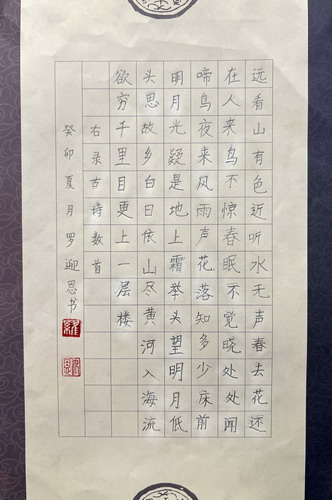 远看山有色近听水无声春去花还
在人来鸟不惊春眠不觉晓处处闻
啼鸟夜来风雨声花落知多少床前
明月光疑是地上霜举头望明月低
头思故乡白日依山尽黄河入海流
欲穷千里目更上一层楼
右录古诗数首
癸卯夏月罗迎恩书